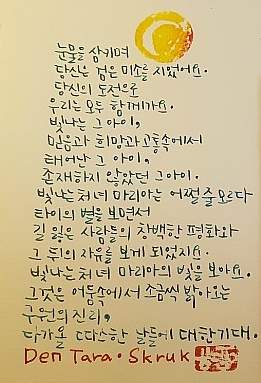 눈물을 삼키며
당신은 검은 미소를 지었어요.
당신의 도전으로
우리는 모두 함께가요.
빛나는 그 아이,
믿음과 희망과 고통속에서
태어난 그 아이,
존재하지 않았던 그아이.
빛나는 처녀 마리아는 어쩔 줄 모르다
타이의 별을 보면서
길 잃은 사람들의 창백한 평화와
그 뒤의 자유를 보게 되었지요.
빛나는 처녀 마리아의 빛을 보아요.
그것은 어둠속에서 조금씩 밝아오는
구원의 진리,
다가올 따스한 날들에 대한 기대.
Den Tara · Skruk